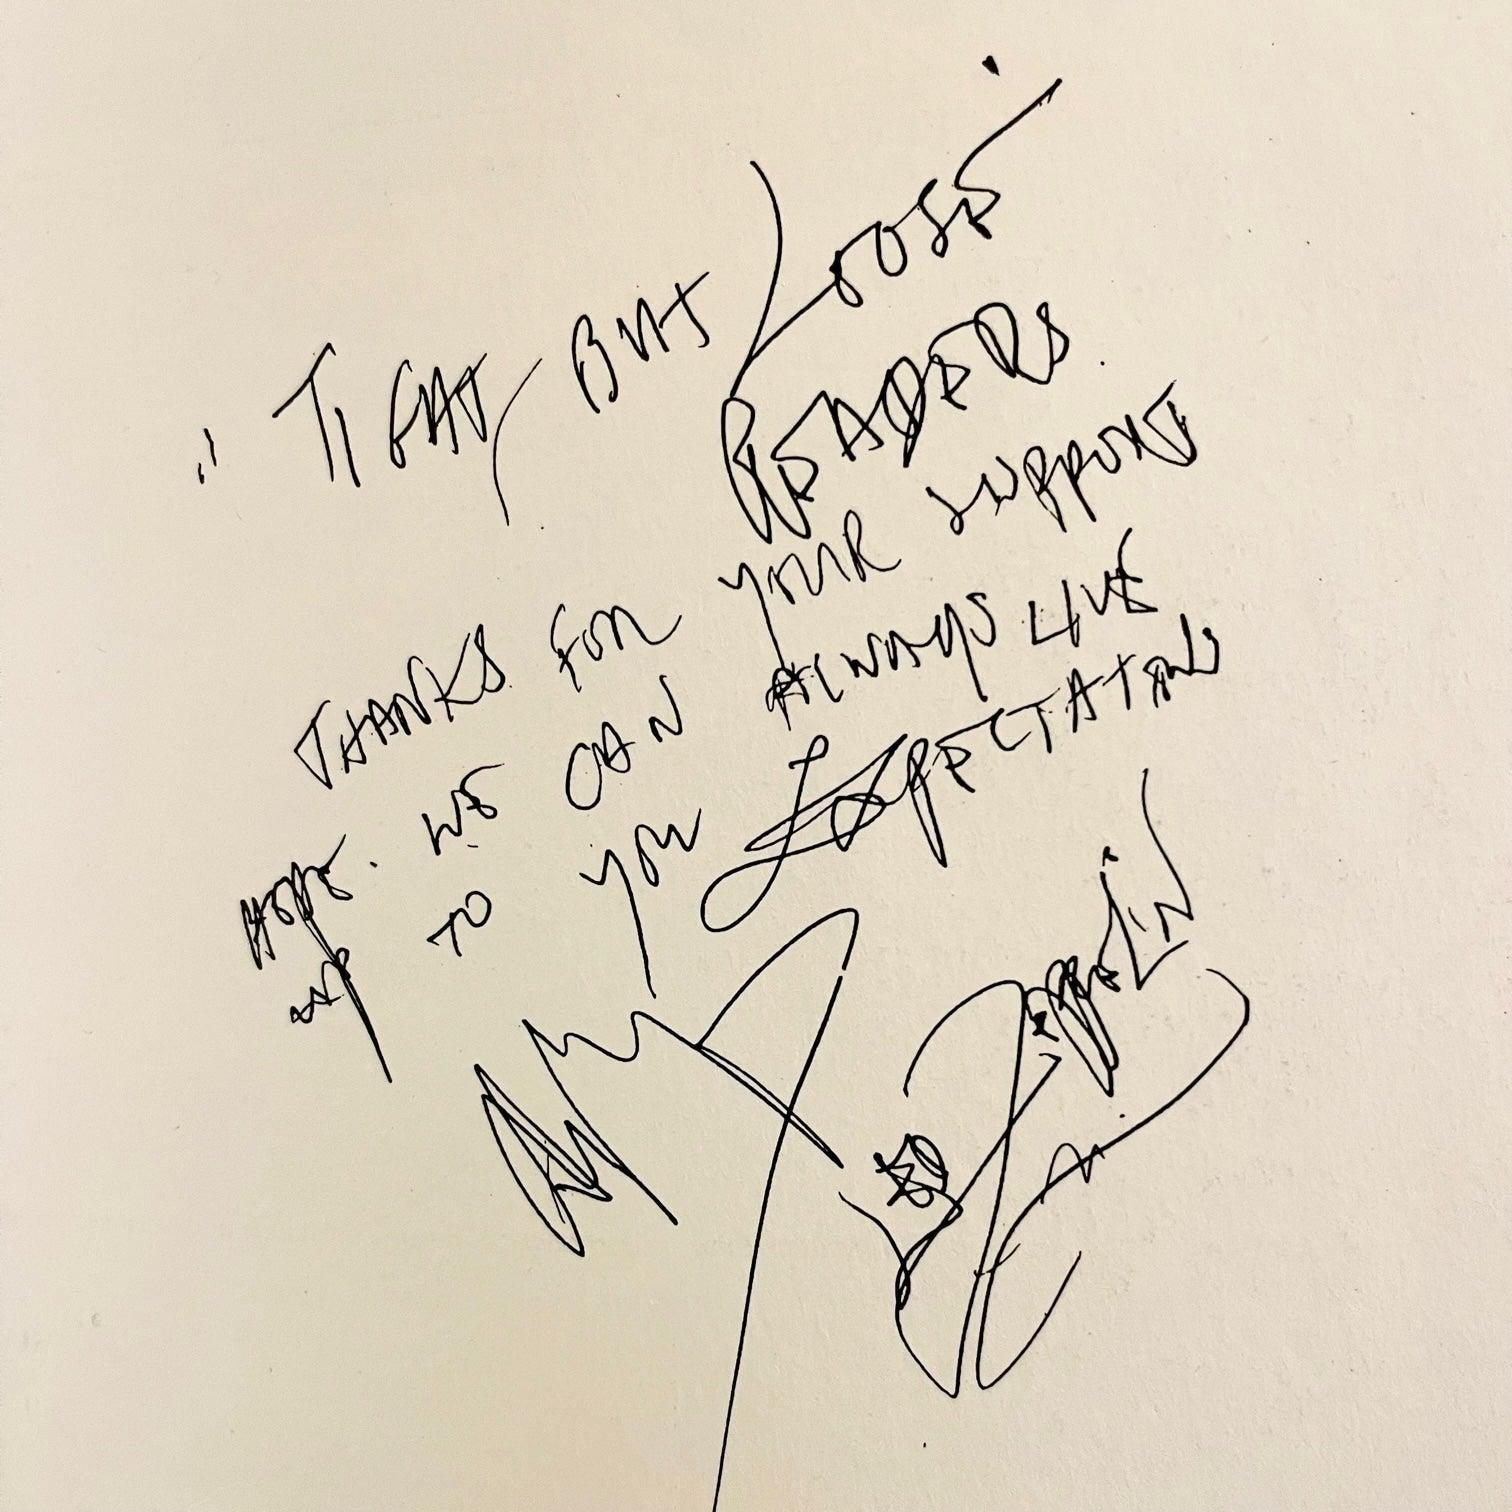 "TIGHT BUT LOOSE"
READERS.
THANKS FOR YOUR SUPPORT
HOPE. WE CAN ALWAYS LIVE
UP TO YOUR EXPECTATIONS
LED ZEPPELIN